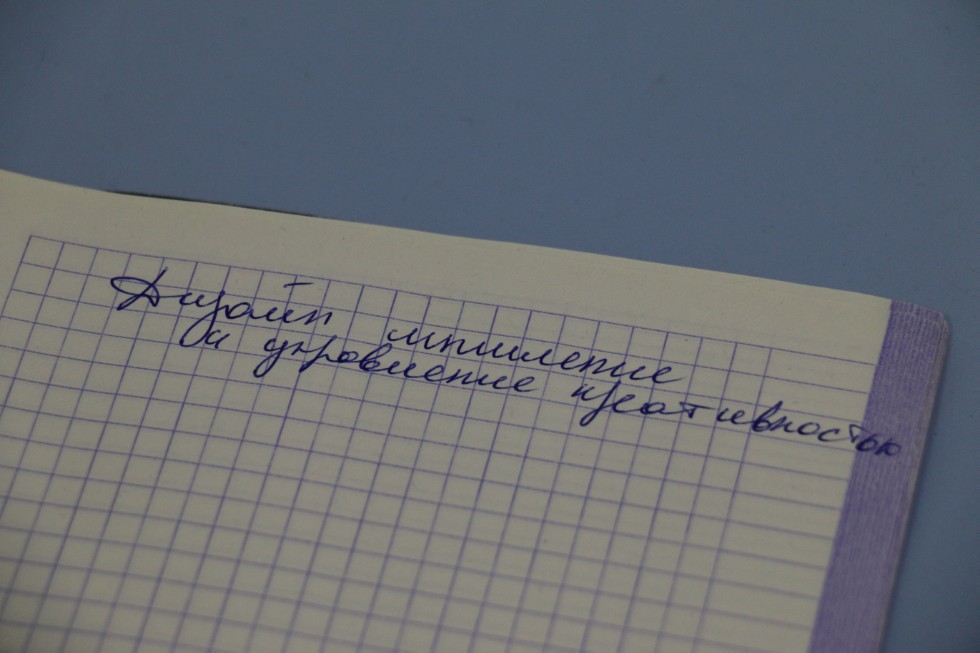 Дизайн мышление
и управление креативностью